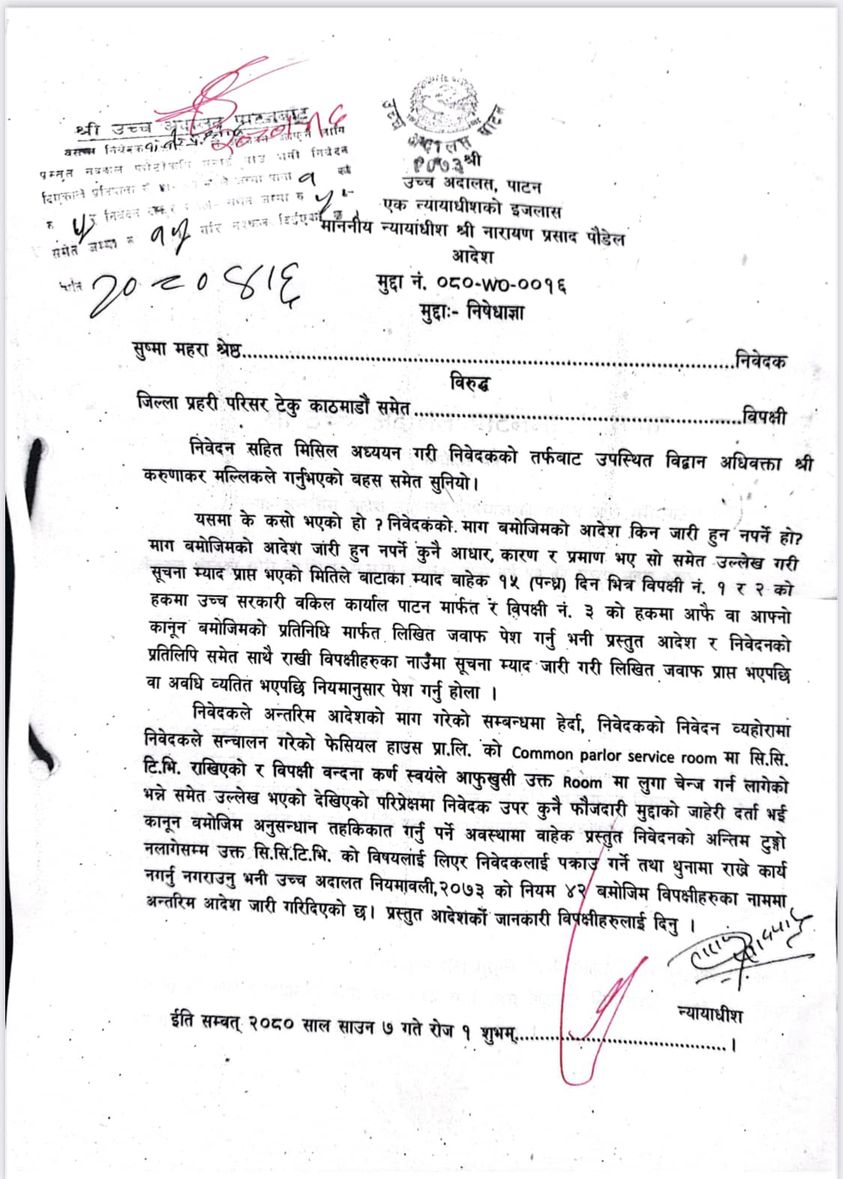 श्री उच्च अदालत पाटनबाट
उच्च अदालत पाटन
२०७३
श्री
उच्च अदालत, पाटन
एक न्यायाधीशको इजलास
माननीय न्यायाधीश श्री नारायण प्रसाद पौडेल
आदेश
मुद्दा नं. ०८०-WO-००१६
मुद्दाः- निषेधाज्ञा
सुष्मा महरा श्रेष्ठ....................................................................................निवेदक
विरुद्ध
जिल्ला प्रहरी परिसर टेकु काठमाडौं समेत.......................................................विपक्षी
निवेदन सहित मिसिल अध्ययन गरी निवेदकको तर्फवाट उपस्थित विद्वान अधिवक्ता श्री
करुणाकर मल्लिकले गर्नुभएको बहस समेत सुनियो।
यसमा के कसो भएको हो ? निवेदकको माग बमोजिमको आदेश किन जारी हुन नपर्ने हो?
माग बमोजिमको आदेश जारी हुन नपर्ने कुनै आधार, कारण र प्रमाण भए सो समेत उल्लेख गरी
सूचना म्याद प्राप्त भएको मितिले बाटाका म्याद बाहेक १५ (पन्ध्र) दिन भित्र विपक्षी नं. १ र २ को
हकमा उच्च सरकारी वकिल कार्याल पाटन मार्फत र विपक्षी नं. ३ को हकमा आफै वा आफ्नो
कानून बमोजिमको प्रतिनिधि मार्फत लिखित जवाफ पेश गर्नु भनी प्रस्तुत आदेश र निवेदनको
प्रतिलिपि समेत साथै राखी विपक्षीहरुका नाउँमा सूचना म्याद जारी गरी लिखित जवाफ प्राप्त भएपछि
वा अवधि व्यतित भएपछि नियमानुसार पेश गर्नु होला ।
निवेदकले अन्तरिम आदेशको माग गरेको सम्बन्धमा हेर्दा, निवेदकको निवेदन व्यहोरामा
निवेदकले सन्चालन गरेको फेसियल हाउस प्रा.लि. को Common parlor service room मा सि.सि.
टि.भि. राखिएको र विपक्षी वन्दना कर्ण स्वयंले आफुखुसी उक्त Room मा लुगा चेन्ज गर्न लागेको
भन्ने समेत उल्लेख भएको देखिएको परिप्रेक्षमा निवेदक उपर कुनै फौजदारी मुद्दाको जाहेरी दर्ता भई
कानून बमोजिम अनुसन्धान तहकिकात गर्नु पर्ने अवस्थामा वाहेक प्रस्तुत निवेदनको अन्तिम टुङ्गो
नलागेसम्म उक्त सि.सि.टि.भि. को विषयलाई लिएर निवेदकलाई पक्राउ गर्ने तथा थुनामा राख्ने कार्य
नगर्नु नगराउनु भनी उच्च अदालत नियमावली,२०७३ को नियम ४२ बमोजिम विपक्षीहरुका नाममा
अन्तरिम आदेश जारी गरिदिएको छ। प्रस्तुत आदेशको जानकारी विपक्षीहरुलाई दिनु ।
न्यायाधीश
ईति सम्वत् २०८० साल साउन ७ गते रोज १ शुभम्....................................।